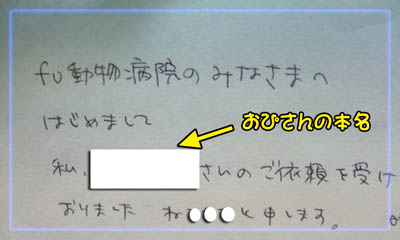 fu動物病院のみなさまへ
はじめまして
おぴさんの本名
私、さんのご依頼を受け
おりました ね●●●と申します。